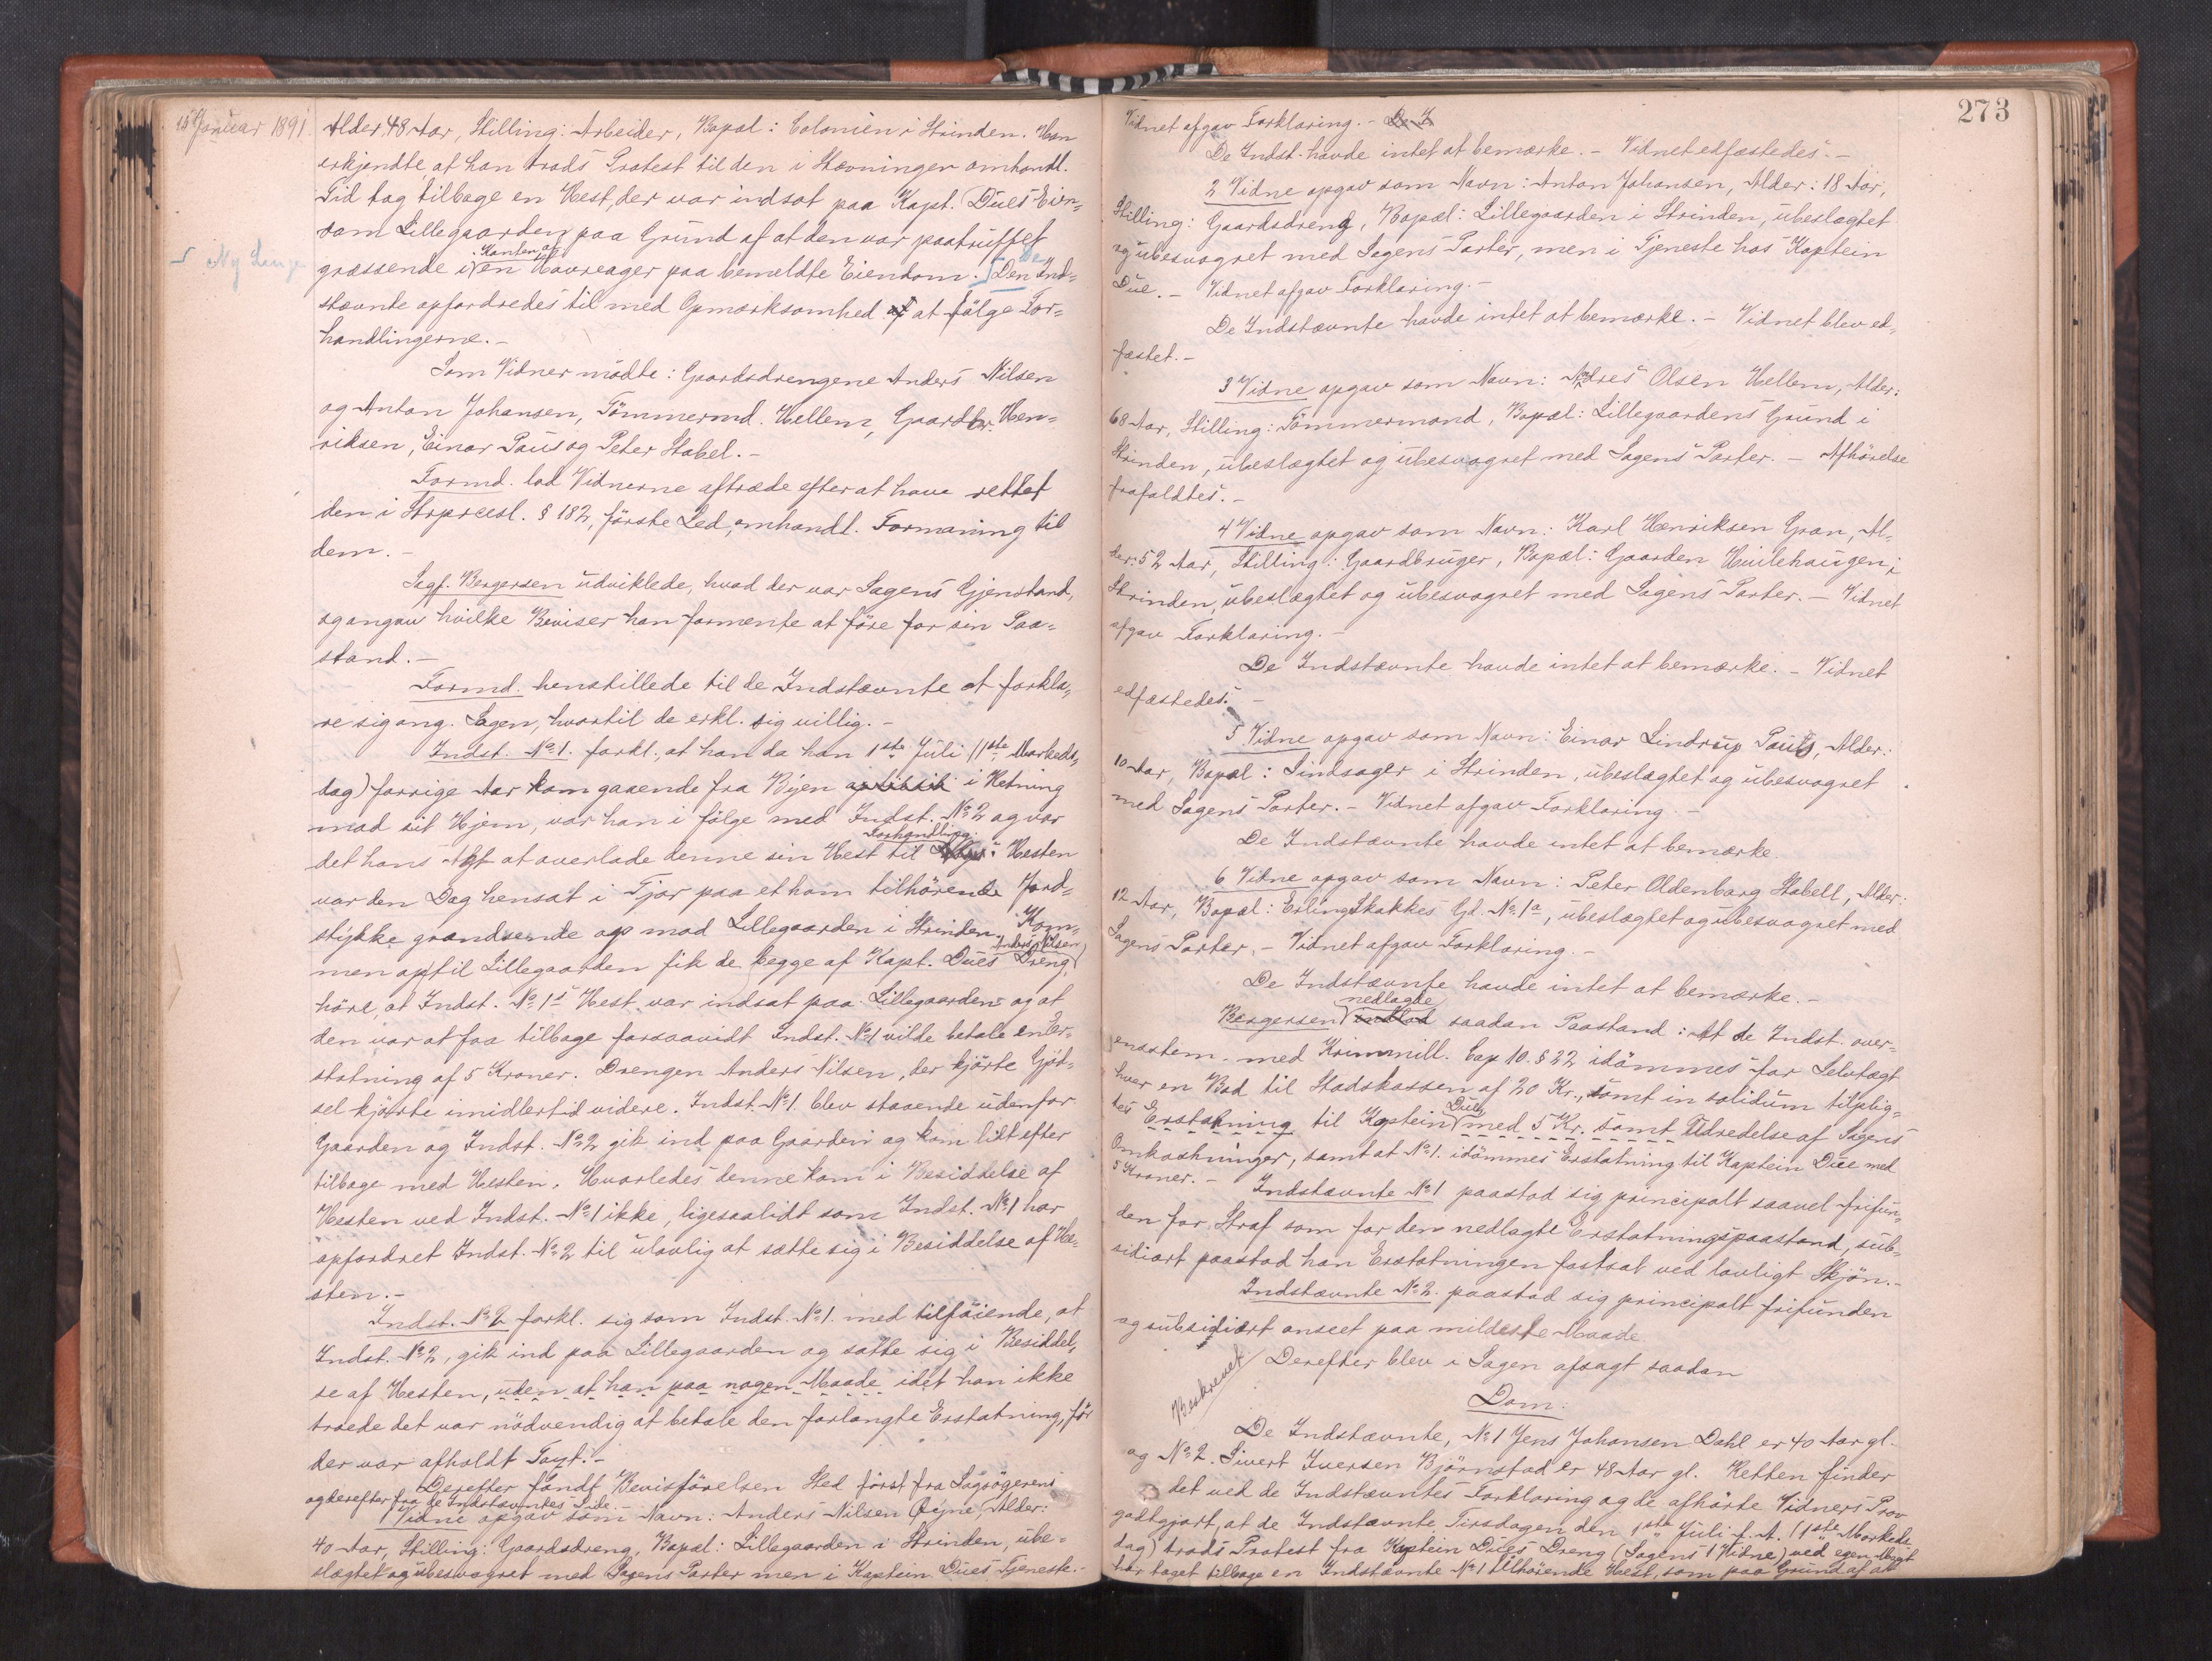 15 Januar 1891.
Alder 48 Aar, Stilling: Arbeider, Bopæl: Colonien i Strinden. Han
erkjendte, at han trods Protest til den i Stævningen omhandl.
Tid tog tilbage en Hest, der var indsat paa Kapt. Dües Eien-
dom Lillegaarden paa Grund af at den var paatruffet
græssende i Kanten af en Havreager paa bemeldte Eiendom. De Den Ind-
Ny Lauge
stævnte opfordredes til med Opmærksomhed at følge For-
handlingerne. -
Som Vidner mødte: Gaardsdrengene Anders Nilsen
og Anton Johansen, Tömmermd. Hellem, Gaardbr. Hen-
riksen, Einar Paus og Peter Stabel. -
Formd. lod Vidnerne aftræde efter at have rettet
den i Strprcesl. § 182, förste Led, omhandl. Formaning til
dem. -
Sagf. Bergersen udviklede, hvad der var Sagens Gjenstand,
og angav hvilke Beviser han formente at före for sin Paa-
stand. -
Formd. henstillede til de Indstævnte at forkla-
re sig ang. Sagen, hvortil de erkl. sig villig. -
Indst. No 1. forkl., at han da han 1ste Juli (1ste Markeds-
dag) forrige Aar kom gaaende fra Byen i Retning
mod sit Hjem, var han i følge med Indst. No 2 og var
det hans Agt at overlade denne sin Hest til Forhandling. Hesten
var den Dag hensat i Tjor paa et ham tilhörende Jord-
stykke grændsende op mod Lillegaarden i Strinden. Kom-
men op til Lillegaarden fik de begge af Kapt. Dües Dreng Anders Nilsen
höre, at Indst. No 1s Hest var indsat paa Lillegaarden og at
den var at faa tilbage forsaavidt Indst. No 1 vilde betale en Er-
statning af 5 Kroner. Drengen Anders Nilsen, der kjörte Gjöd-
sel kjörte imidlertid videre. Indst. No 1. blev staaende udenfor
Gaarden og Indst. No 2 gik ind paa Gaarden og kom lidt efter
tilbage med Hesten. Hvorledes denne kom i Besiddelse af
Hesten ved Indst. No 1 ikke, ligesaalidt som Indst. No 1 har
opfordret Indst. No 2 til ulovlig at sætte sig i Besiddelse af He-
sten. -
Indst. No 2 forkl. sig som Indst. No 1. med tilföiende, at
Indst. No 2, gik ind paa Lillegaarden og satte sig i Besiddel-
se af Hesten, uden at han paa nogen Maade idet han ikke
troede det var nödvendig at betale den forlangte Erstatning, för
der var afholdt Taxt. -
Derefter fandt Bevisförelsen Sted först fra Sagsögerens
og derefter fra de Indstævntes Side. -
1 Vidne opgav som Navn: Anders Nilsen Öyne, Alder:
40 Aar, Stilling: Gaardsdreng, Bopæl: Lillegaarden i Strinden, ube-
slægtet og ubesvogret med Sagens Parter men i Kaptein Dües Tjeneste. -
273
Vidnet afgav Forklaring. - De I
De Indst. havde intet at bemærke. - Vidnet edfæstedes. -
2 Vidne opgav som Navn: Anton Johansen, Alder: 18 Aar,
Stilling: Gaardsdreng, Bopæl: Lillegaarden i Strinden, ubeslægtet
og ubesvogret med Sagens Parter, men i Tjeneste hos Kaptein
Düe. - Vidnet afgav Forklaring. -
De Indstævnte havde intet at bemærke. - Vidnet blev ed-
fæstet. -
3 Vidne opgav som Navn: Andres Olsen Hellem, Alder:
68 Aar, Stilling: Tömmermand, Bopæl: Lillegaardens Grund i
Strinden, ubeslægtet og ubesvogret med Sagens Parter. - Afhörelse
frafaldtes. -
4 Vidne opgav som Navn: Karl Henriksen Gran, Al-
der: 52 Aar, Stilling: Gaardbruger, Bopæl: Gaarden Hvilehaugen i
Strinden, ubeslægtet og ubesvogret med Sagens Parter. - Vidnet
afgav Forklaring. -
De Indstævnte havde intet at bemærke. - Vidnet
edfæstedes. -
5 Vidne opgav som Navn: Einar Lindrup Paus, Alder:
10 Aar, Bopæl: Sindsager i Strinden, ubeslægtet og ubesvogret
med Sagens Parter. - Vidnet afgav Forklaring. -
De Indstævnte havde intet at bemærke.
6 Vidne opgav som Navn: Peter Oldenborg Stabell, Alder:
12 Aar, Bopæl: Erling Skakkes Gd. No 1a, ubeslægtet og ubesvogret med
Sagens Parter. - Vidnet afgav Forklaring. -
De Indstævnte havde intet at bemærke. -
Bergersen nedlagde saadan Paastand: At de Indst. over-
ensstem. med Kriminll. Cap 10. § 22 idömmes for Selvtægt
hver en Bod til Stadskassen af 20 Kr., samt in solidum tilplig-
tes Erstatning til Kaptein Düe med 5 Kr. samt Udredelse af Sagens
Omkostninger, samt at No 1. idömmes Erstatning til Kaptein Düe med
5 Kroner. - Indstævnte No 1 paastod sig principalt saavel frifun-
den for Straf som for den nedlagte Erstatningspaastand, sub-
sidiært paastod han Erstatningen fastsat ved lovligt Skjön. -
Indstævnte No 2. paastod sig principalt frifunden
og subsidiært anseet paa mildeste Maade.
Beskrevet
Derefter blev i Sagen afsagt saadan
Dom:
De Indstævnte, No 1 Jens Johansen Dahl er 40 Aar gl.
og No 2. Sivert Iversen Björnstad er 48 Aar gl. Retten finder
det ved de Indstævntes Forklaring og de afhörte Vidners Prov
godtgjort, at de Indstævnte Tirsdagen den 1ste Juli f. A. (1ste Markeds-
dag) trods Protest fra Kaptein Dües Dreng (Sagens 1 Vidne) ved egen Magt
har taget tilbage en Indstævnte No 1 tilhörende Hest, som paa Grund af at